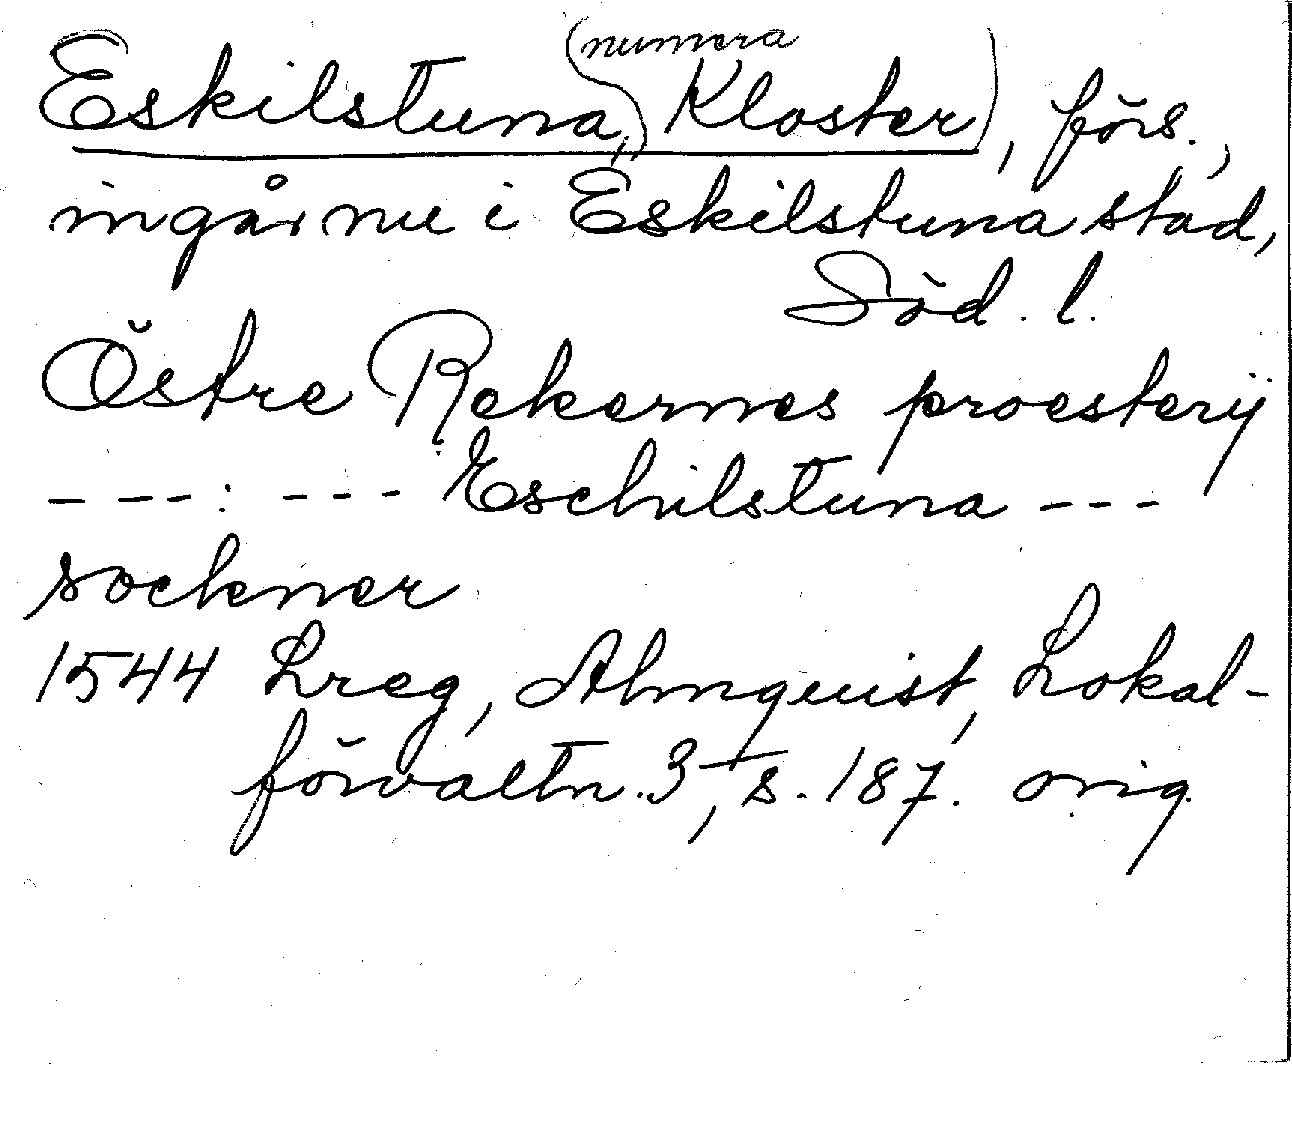 Eskilstuna, (numera Kloster), förs.,
ingår nu i Eskilstuna stad,
Söd. l.
Östre Rekernes proestery
- -- : --- Eschilstuna ---
sockner
1544 Lreg, Almquist, Lokal-
förvaltn. 3, s. 187. orig.